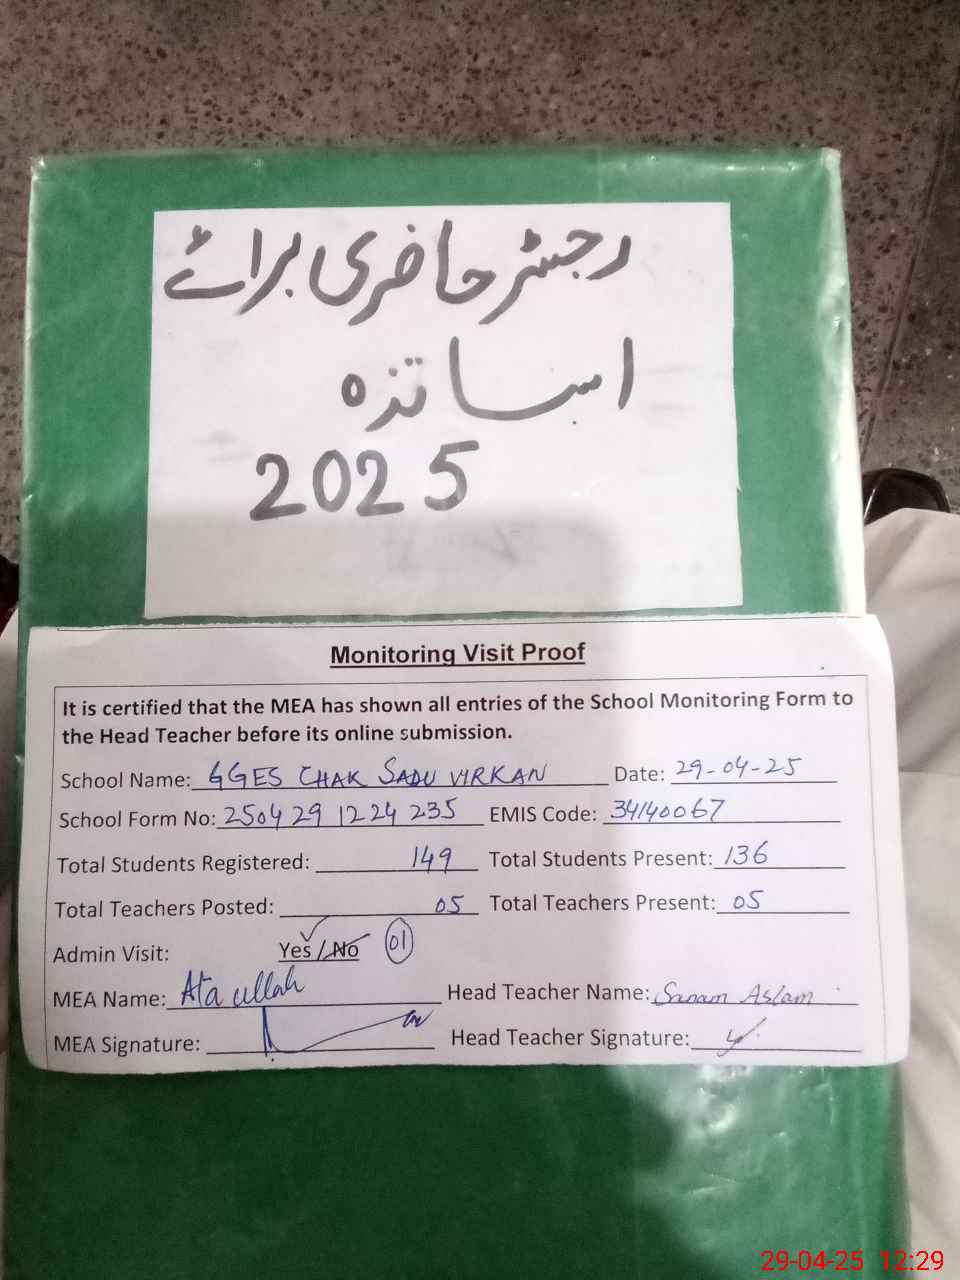 رجسٹر حاضری برائے
اساتذہ
2025
Monitoring Visit Proof
It is certified that the MEA has shown all entries of the School Monitoring Form to
the Head Teacher before its online submission.
School Name: GGES CHAK SADU VIRKAN Date: 29-04-25
School Form No: 2504 29 12 24 235 EMIS Code: 34140067
Total Students Registered: 149 Total Students Present: 136
Total Teachers Posted: 05 Total Teachers Present: 05
Admin Visit: Yes / No 01
MEA Name: Ata ullah Head Teacher Name: Sanam Aslam
MEA Signature: Head Teacher Signature:
29-04-25 12:29